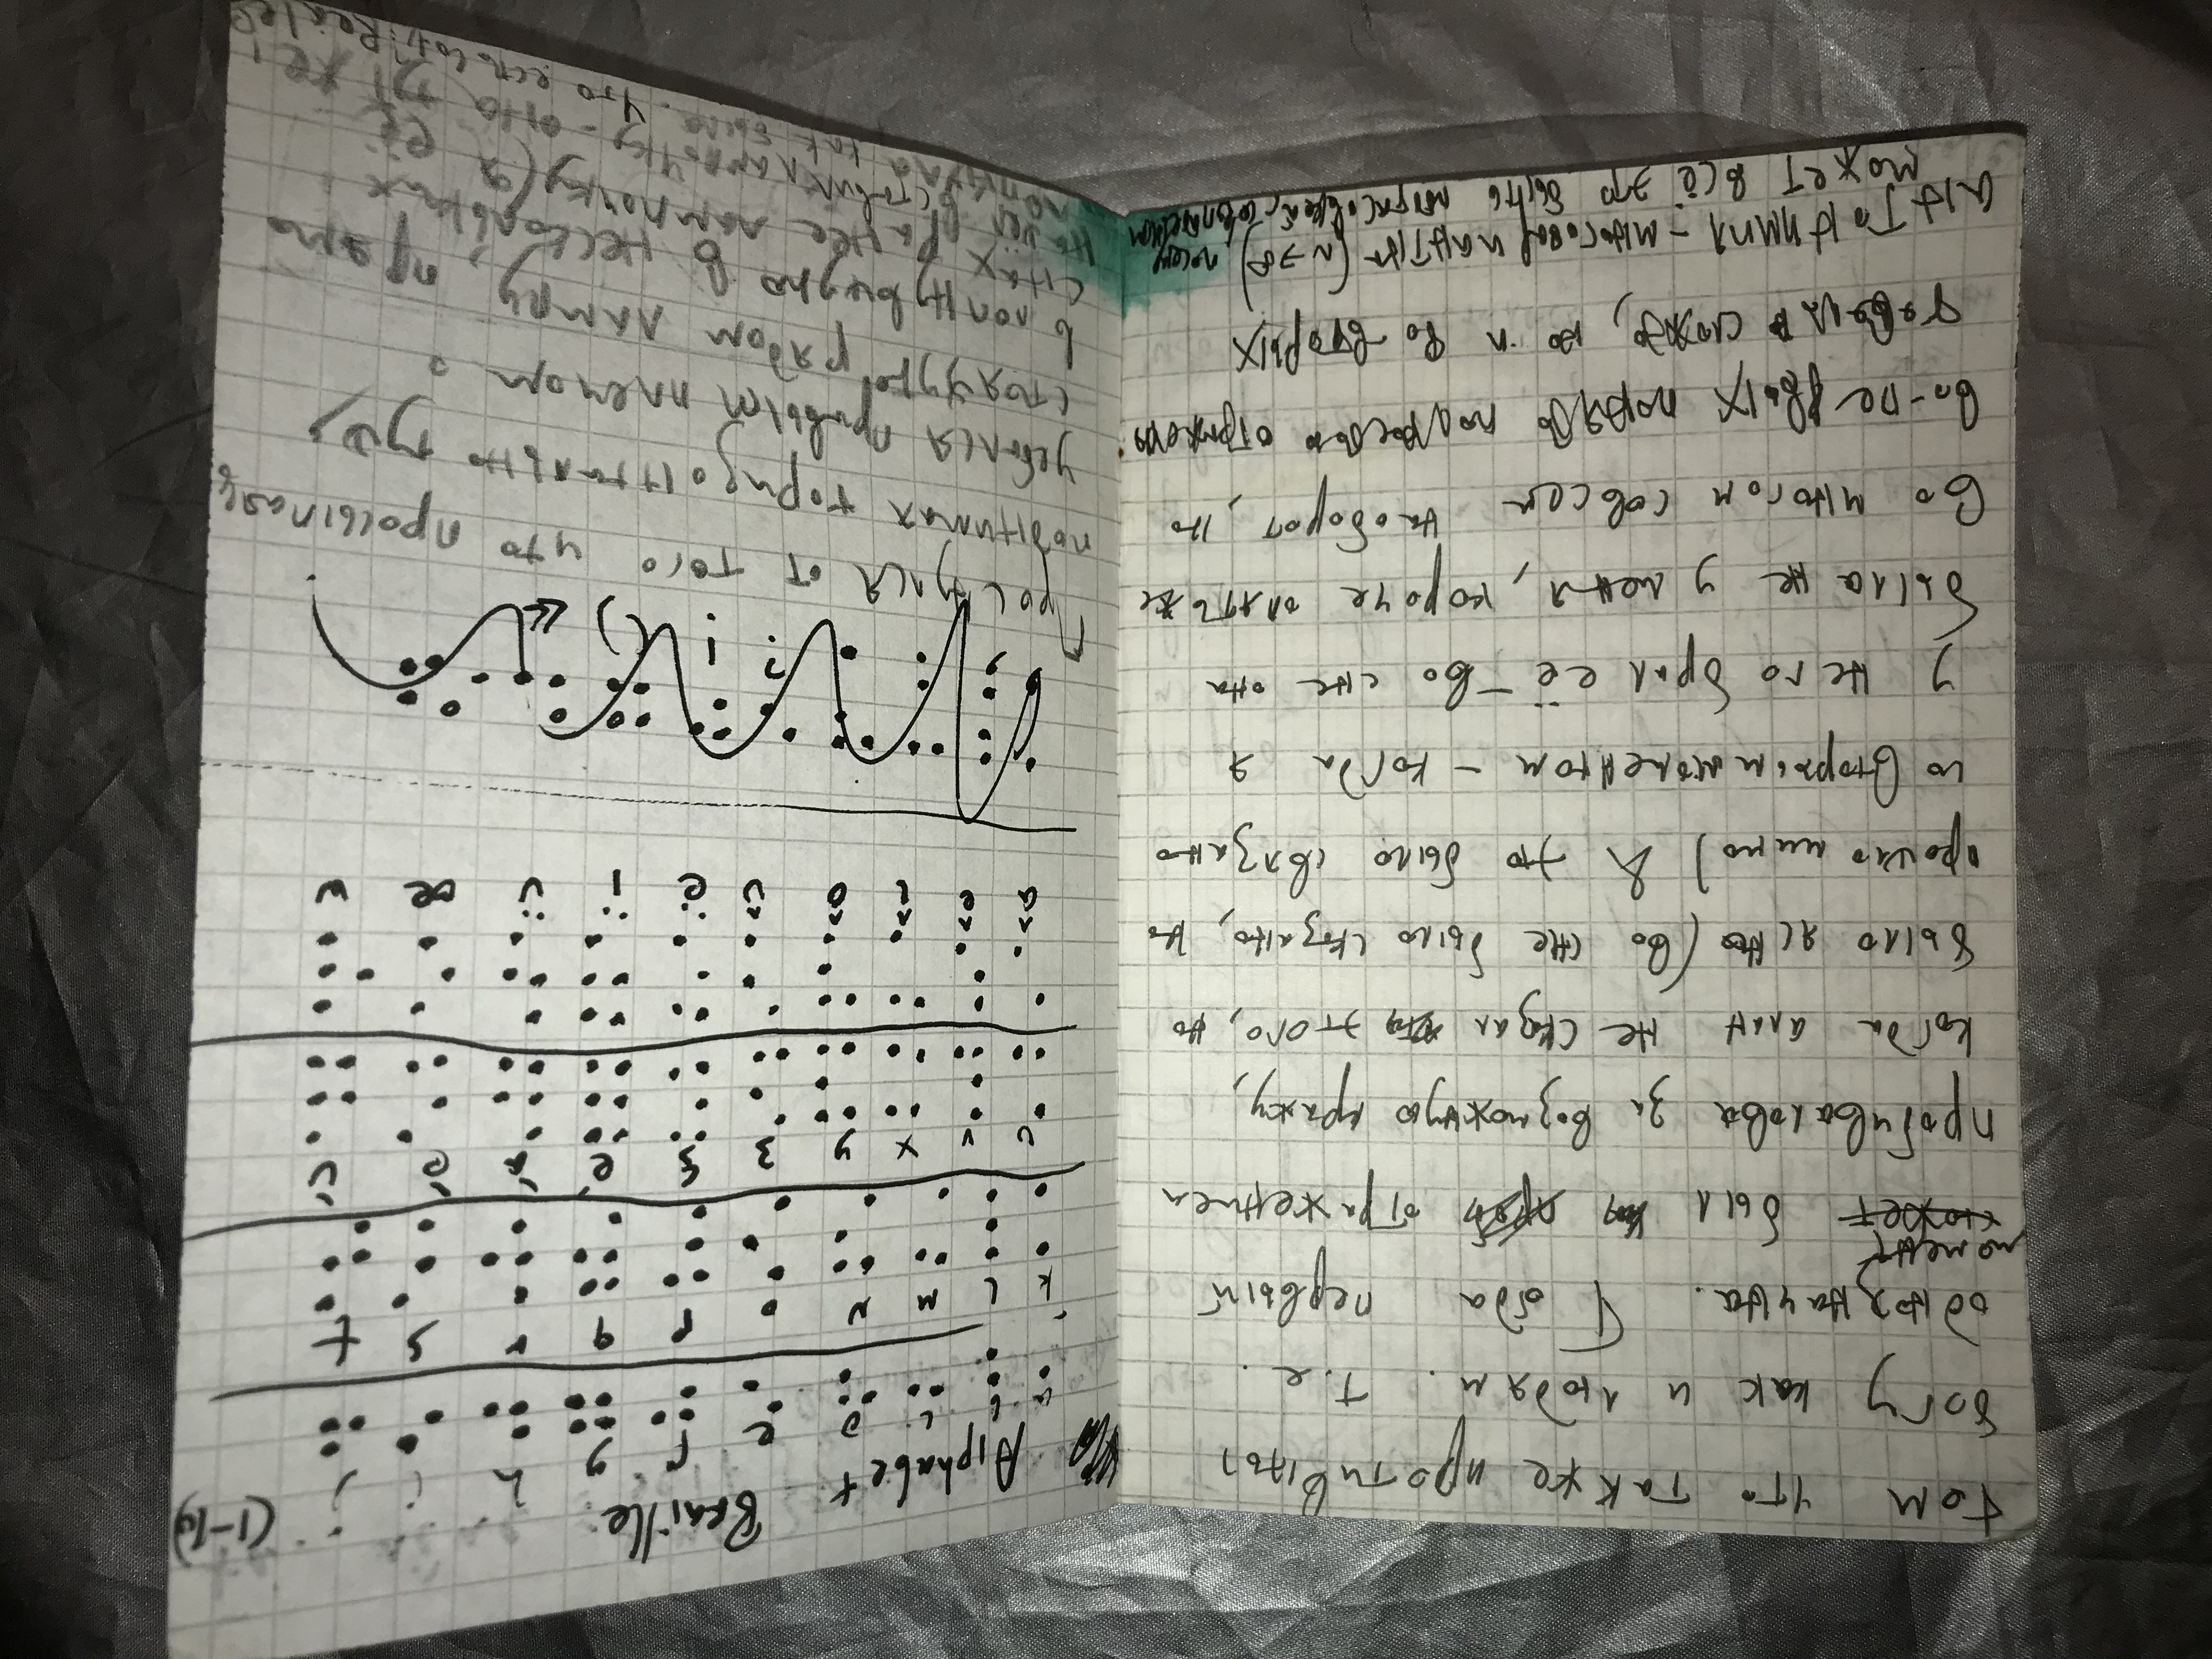 том что также противны
богу как и людям. т.е.
однозначна. Тогда первый
момент
сюжет был отражением
за возможную кражу,
когда алан не сказал этого, но
было ясно (во сне было сказано, но
прошло мимо) & это было связано
со вторым моментом – когда я
у него брал её – во сне она
была не у меня, короче опять же
во многом совсем наоборот, но
во-первых понять полностью отражения
сложно, но и во-вторых
антонимия – многовариантна (n→∞)
может всё это быть
Alphabet Braille (1-10)
a b c d e f g h i j
k l m n o p q r s t
u v x y z ç é à è ù
â ê î ô û ë ï ü œ w
, ? ! () «
Проснулся от того что просыпаясь
поднимая горизонтально
уебался правым плечом о
стоящую рядом лампу, прямо
в нескольких
снах ранее лампочку (я её
нашёл вставил лампочку – она тут же
лопнула, так было. Что есть сон?